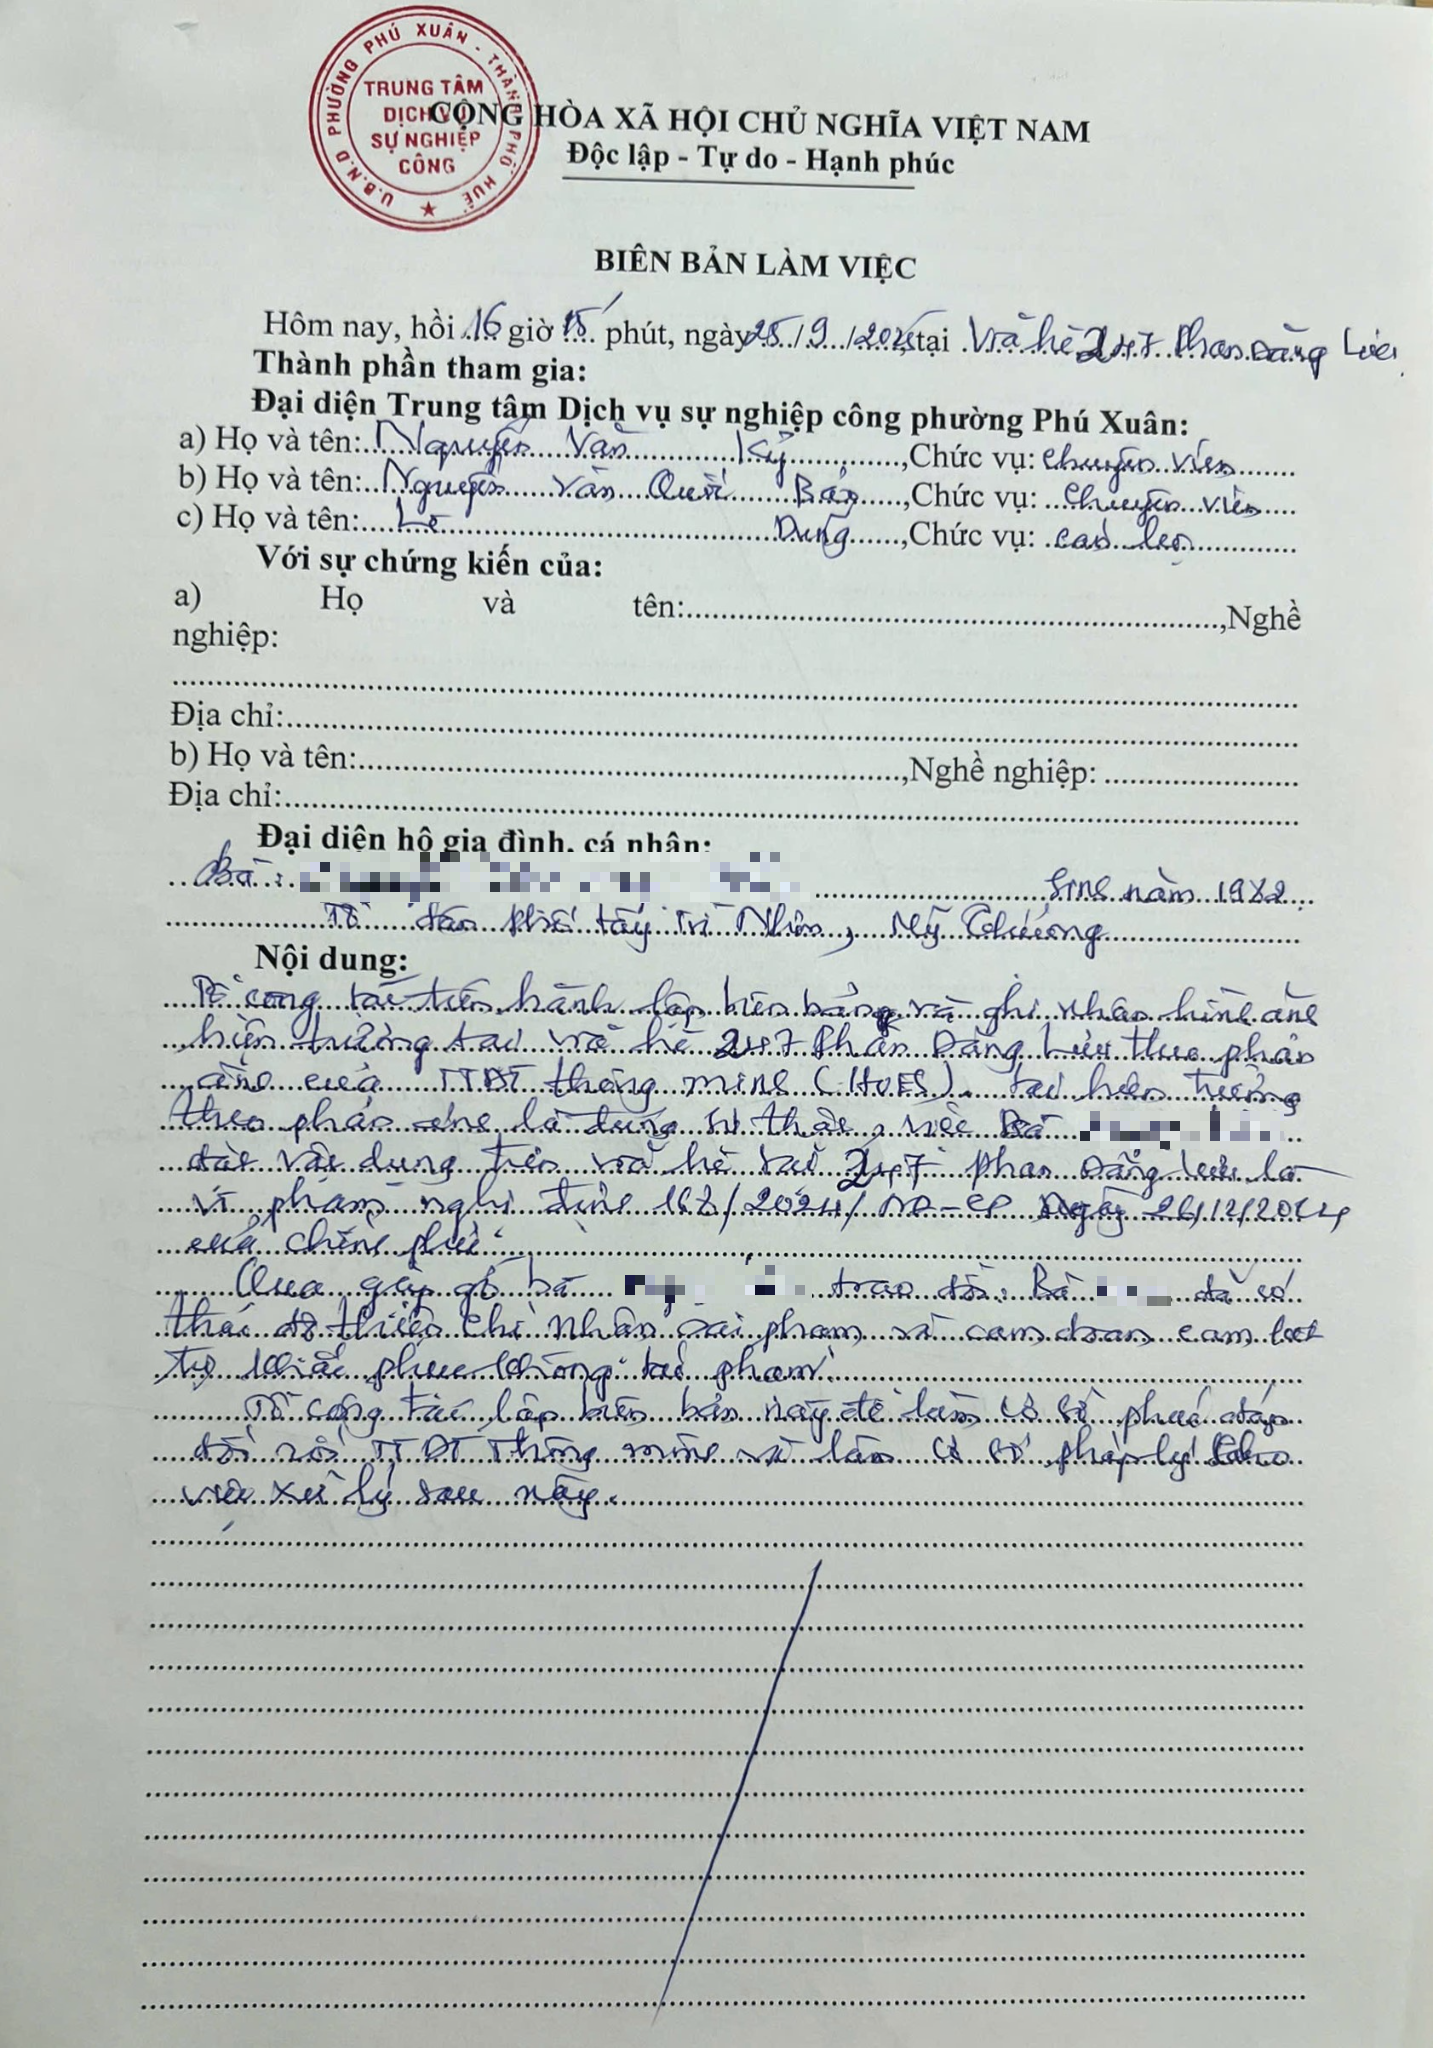 U.B.N.D PHƯỜNG PHÚ XUÂN - THÀNH PHỐ HUẾ
TRUNG TÂM
DỊCH VỤ
SỰ NGHIỆP
CÔNG
CỘNG HÒA XÃ HỘI CHỦ NGHĨA VIỆT NAM
Độc lập - Tự do - Hạnh phúc
BIÊN BẢN LÀM VIỆC
Hôm nay, hồi 16 giờ 15 phút, ngày 25/9/2025, tại Vỉa hè 247 Phan Đăng Lưu
Thành phần tham gia:
Đại diện Trung tâm Dịch vụ sự nghiệp công phường Phú Xuân:
a) Họ và tên: Nguyễn Văn Kỷ, Chức vụ: chuyên viên
b) Họ và tên: Nguyễn Văn Quốc Bảo, Chức vụ: Chuyên viên
c) Họ và tên: Lê Dũng, Chức vụ:
Với sự chứng kiến của:
a) Họ và tên:, Nghề
nghiệp:
Địa chỉ:
b) Họ và tên:, Nghề nghiệp:
Địa chỉ:
Đại diện hộ gia đình, cá nhân:
Bà: sinh năm 1982
Tổ dân phố tây Trì Nhơn, Mỹ Thượng
Nội dung:
Tổ công tác tiến hành lập biên bản và ghi nhận hình ảnh
hiện trường tại vỉa hè 247 Phan Đăng Lưu theo phản
ánh của TTĐT thông minh (HUES). tại hiện trường
theo phản ánh là đúng sự thật, việc Bà
đặt vật dụng trên vỉa hè tại 247 phan Đăng Lưu là
vi phạm nghị định 168/2024/NĐ-CP Ngày 26/12/2024
của Chính phủ.
Qua gặp gỡ bà trao đổi. Bà đã có
thái độ thiện chí Nhận sai phạm và cam đoan cam kết
tự khắc phục không tái phạm.
Tổ công tác lập biên bản này để làm cơ sở phúc đáp
đối với TTĐT thông minh và làm cơ sở pháp lý cho
việc xử lý sau này.